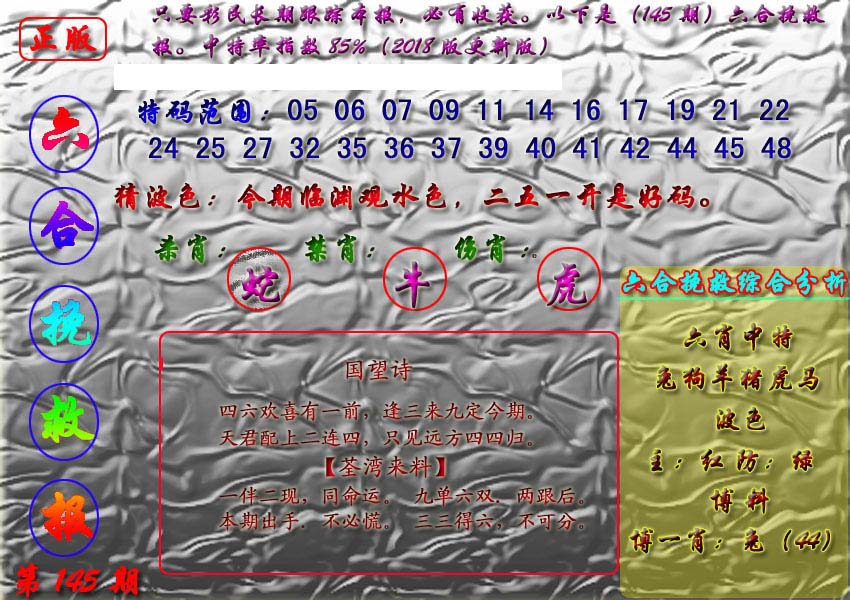 正版
只要彩民长期跟踪本报，必有收获。以下是（145期）六合挽救
报。中特率指数85%（2018版更新版）
六合挽救报
第145期
特码范围：05 06 07 09 11 14 16 17 19 21 22
24 25 27 32 35 36 37 39 40 41 42 44 45 48
猜波色：今期临渊观水色，二五一开是好码。
杀肖：蛇 禁肖：牛 伤肖：虎。
国望诗
四六欢喜有一前，逢三来九定今期。
天君配上二连四，只见远方四四归。
【荃湾来料】
一伴二现，同命运。 九单六双．两跟后。
本期出手．不必慌。 三三得六，不可分。
六合挽救综合分析
六肖中特
兔狗羊猪虎马
波色
主：红 防：绿
博料
博一肖：兔（44）